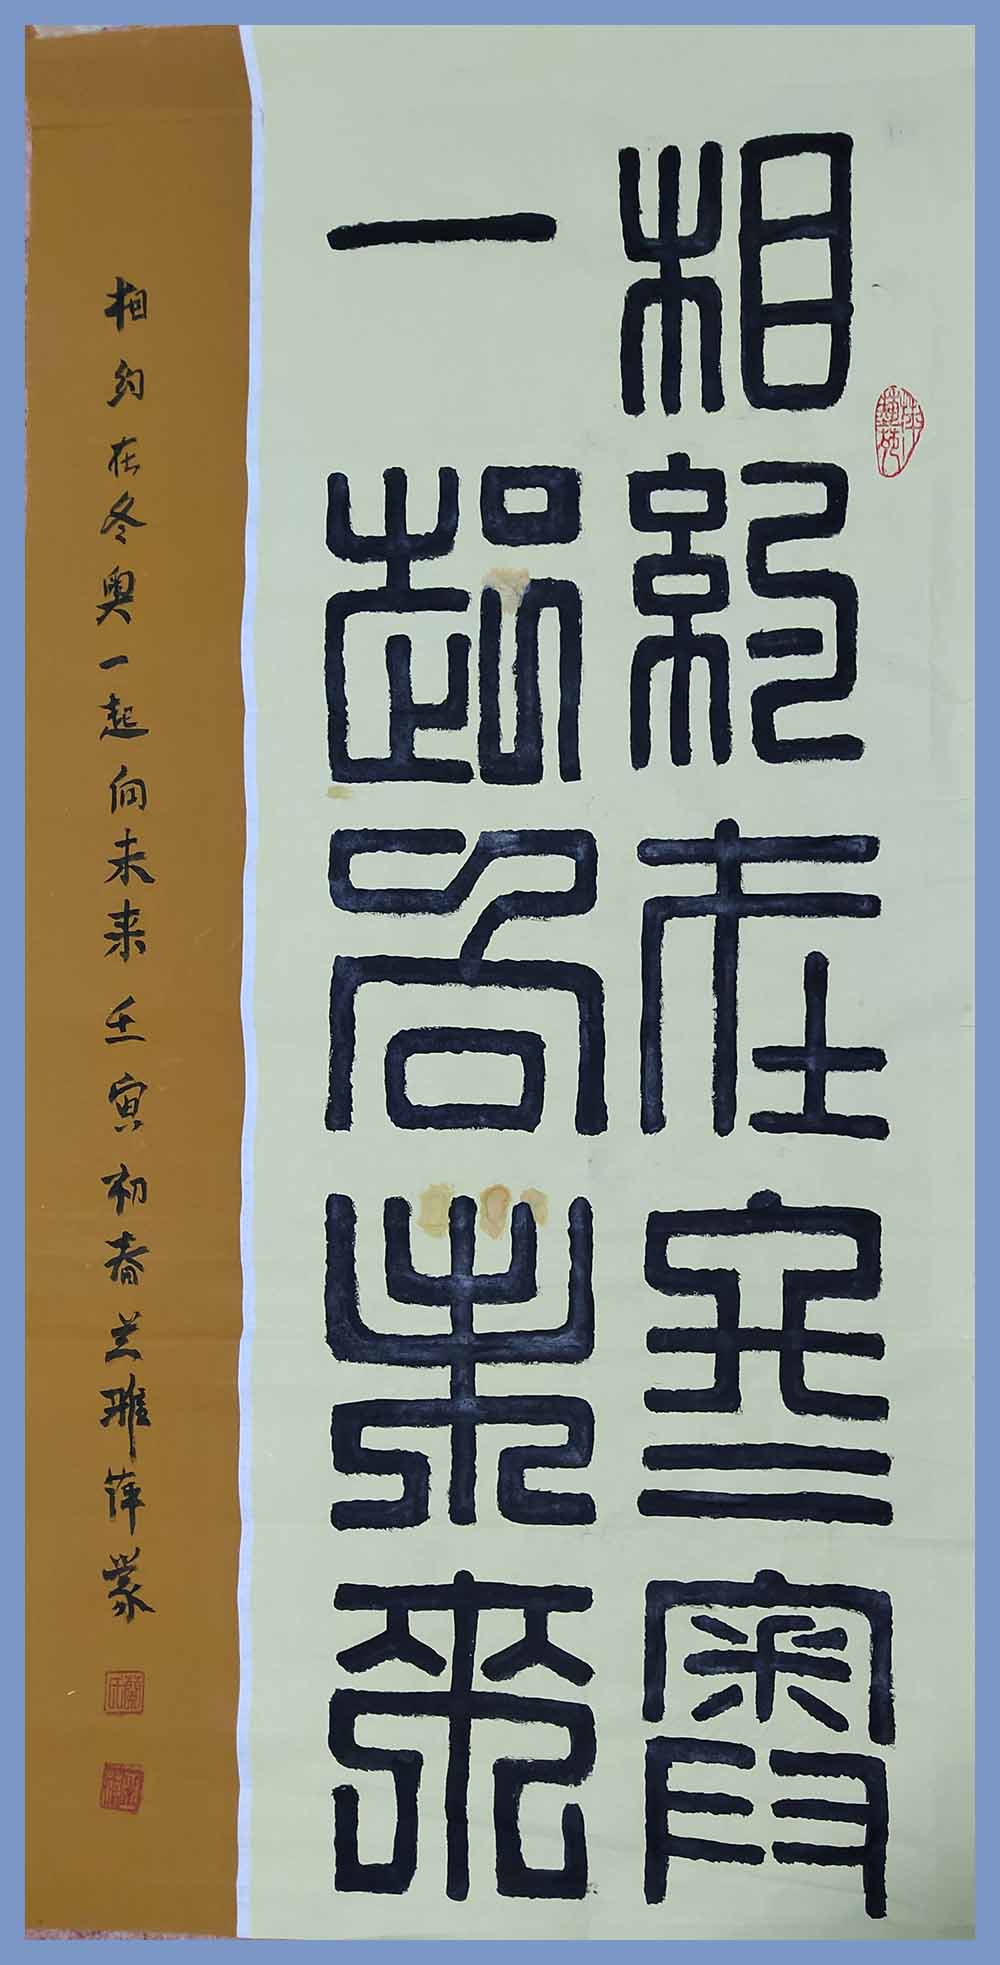 相約在冬奥
一起向未來
相约在冬奥一起向未来壬寅初春兰雅萍篆